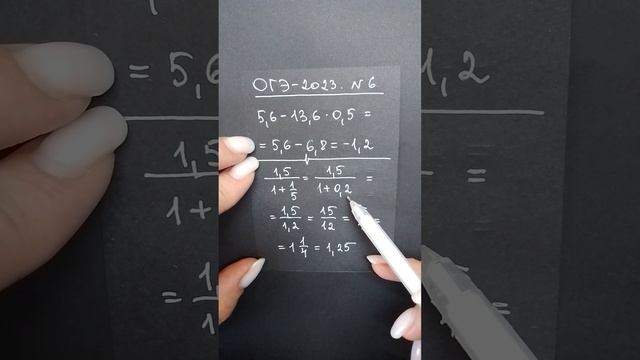 ОГЭ-2023. N6
5,6-13,6·0,5 =
= 5,6-6,8 = -1,2
1,5/(1+1/5) = 1,5/(1+0,2) =
= 1,5/1,2 = 15/12 = =
= 1 1/4 = 1,25